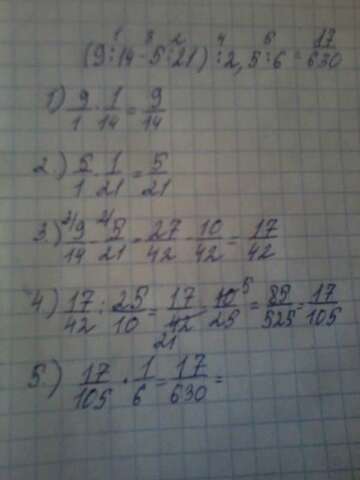 1 3 2 4 5
(9:14-5:21):2,5:6=17/630
1) 9/1 · 1/14 = 9/14
2.) 5/1 · 1/21 = 5/21
3.) 9/14 - 5/21 = 27/42 - 10/42 = 17/42
4.) 17/42 : 25/10 = 17/42 · 10/25 = 85/525 = 17/105
21 5
5.) 17/105 · 1/6 = 17/630 =